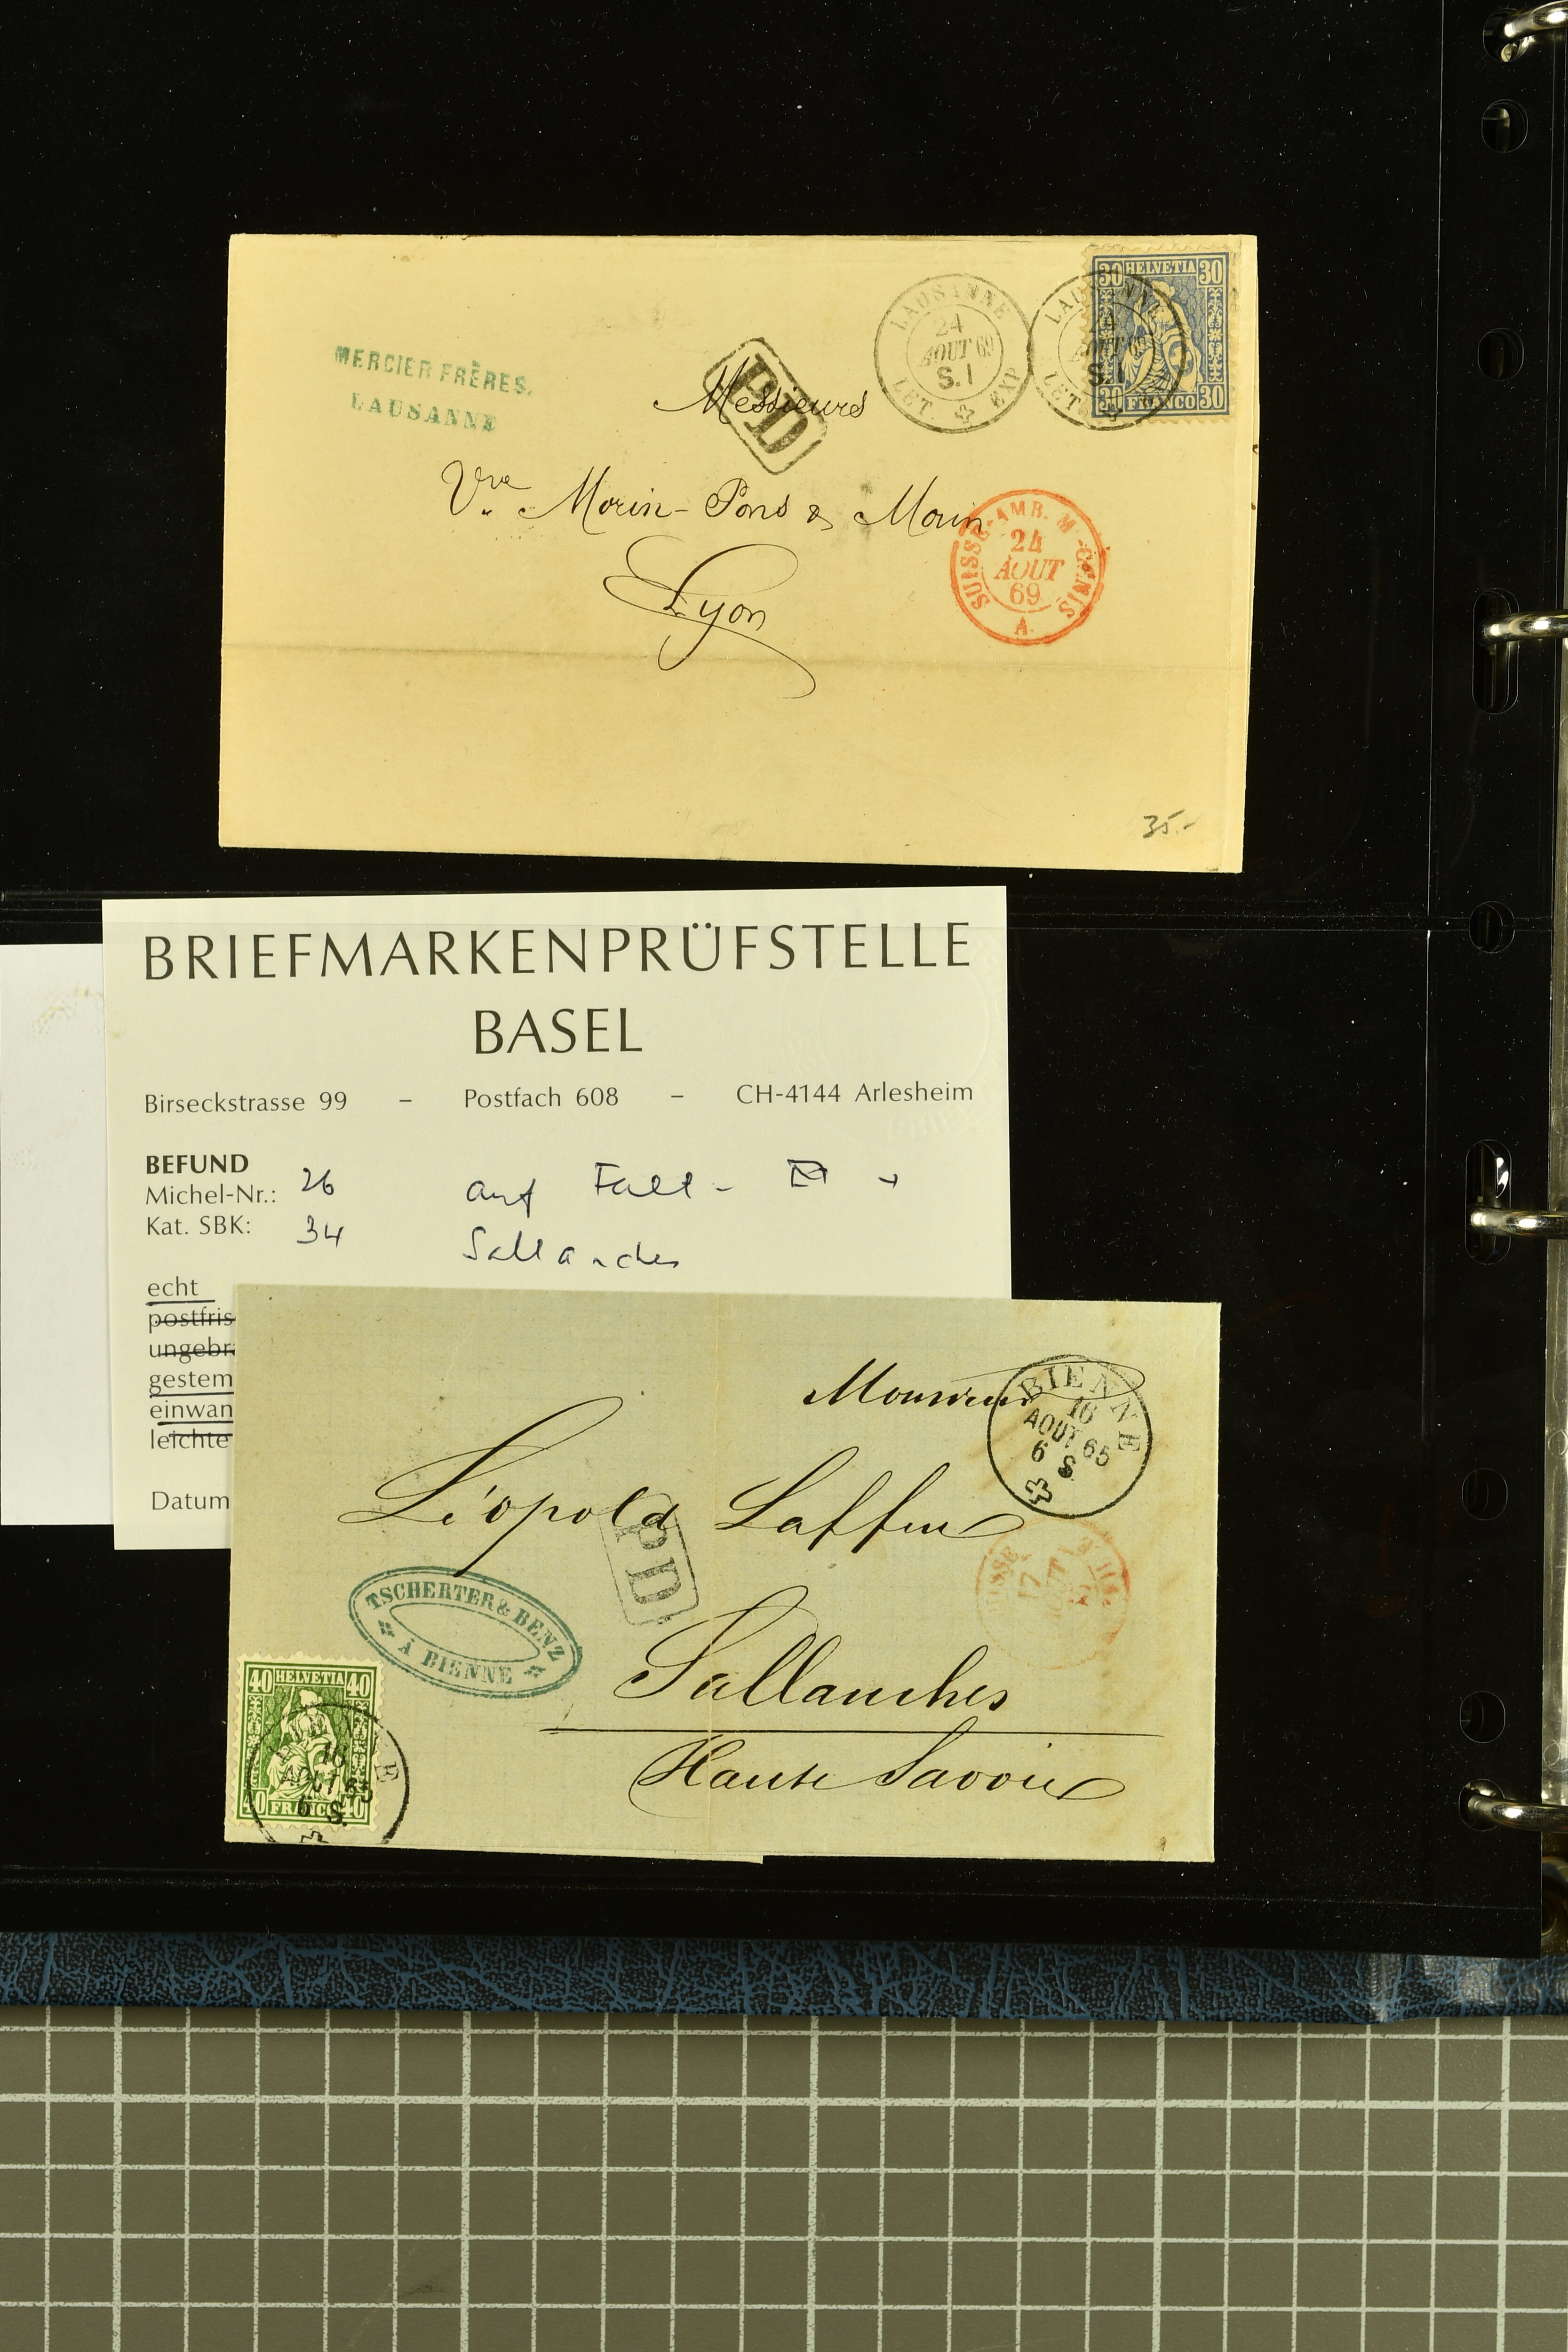 MERCIER FRÈRES.
LAUSANNE
LAUSANNE
24
AOUT 69
S. I
LET. EXP
LAUSANNE
24
AOUT 69
S. I
LET.
30 HELVETIA 30
30 FRANCO 30
PD
Messieurs
Vve Morin-Pons & Morin
Lyon
SUISSE-AMB. M.-CENIS
24
AOUT
69
A
35.-
BRIEFMARKENPRÜFSTELLE
BASEL
Birseckstrasse 99 – Postfach 608 – CH-4144 Arlesheim
BEFUND
Michel-Nr.: 26 auf Falt-
Kat. SBK: 34 Sallanches
echt
postfris
ungebr
gestem
einwan
leichte
Datum
Monsieur
BIENNE
16
AOUT 65
6 S.
Léopold
PD
TSCHERTER & BENZ
À BIENNE
17
Sallanches
Haute Savoie
40 HELVETIA 40
40 FRANCO 40
16
AOUT 65
6 S.